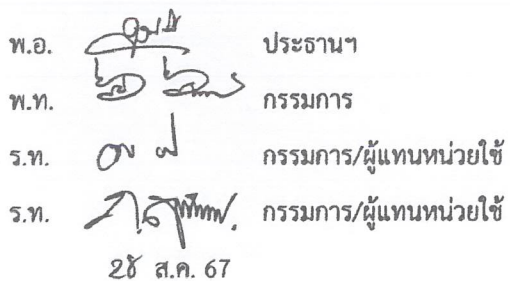 พ.อ. ประธานฯ
พ.ท. กรรมการ
ร.ท. กรรมการ/ผู้แทนหน่วยใช้
ร.ท. กรรมการ/ผู้แทนหน่วยใช้
28 ส.ค. 67